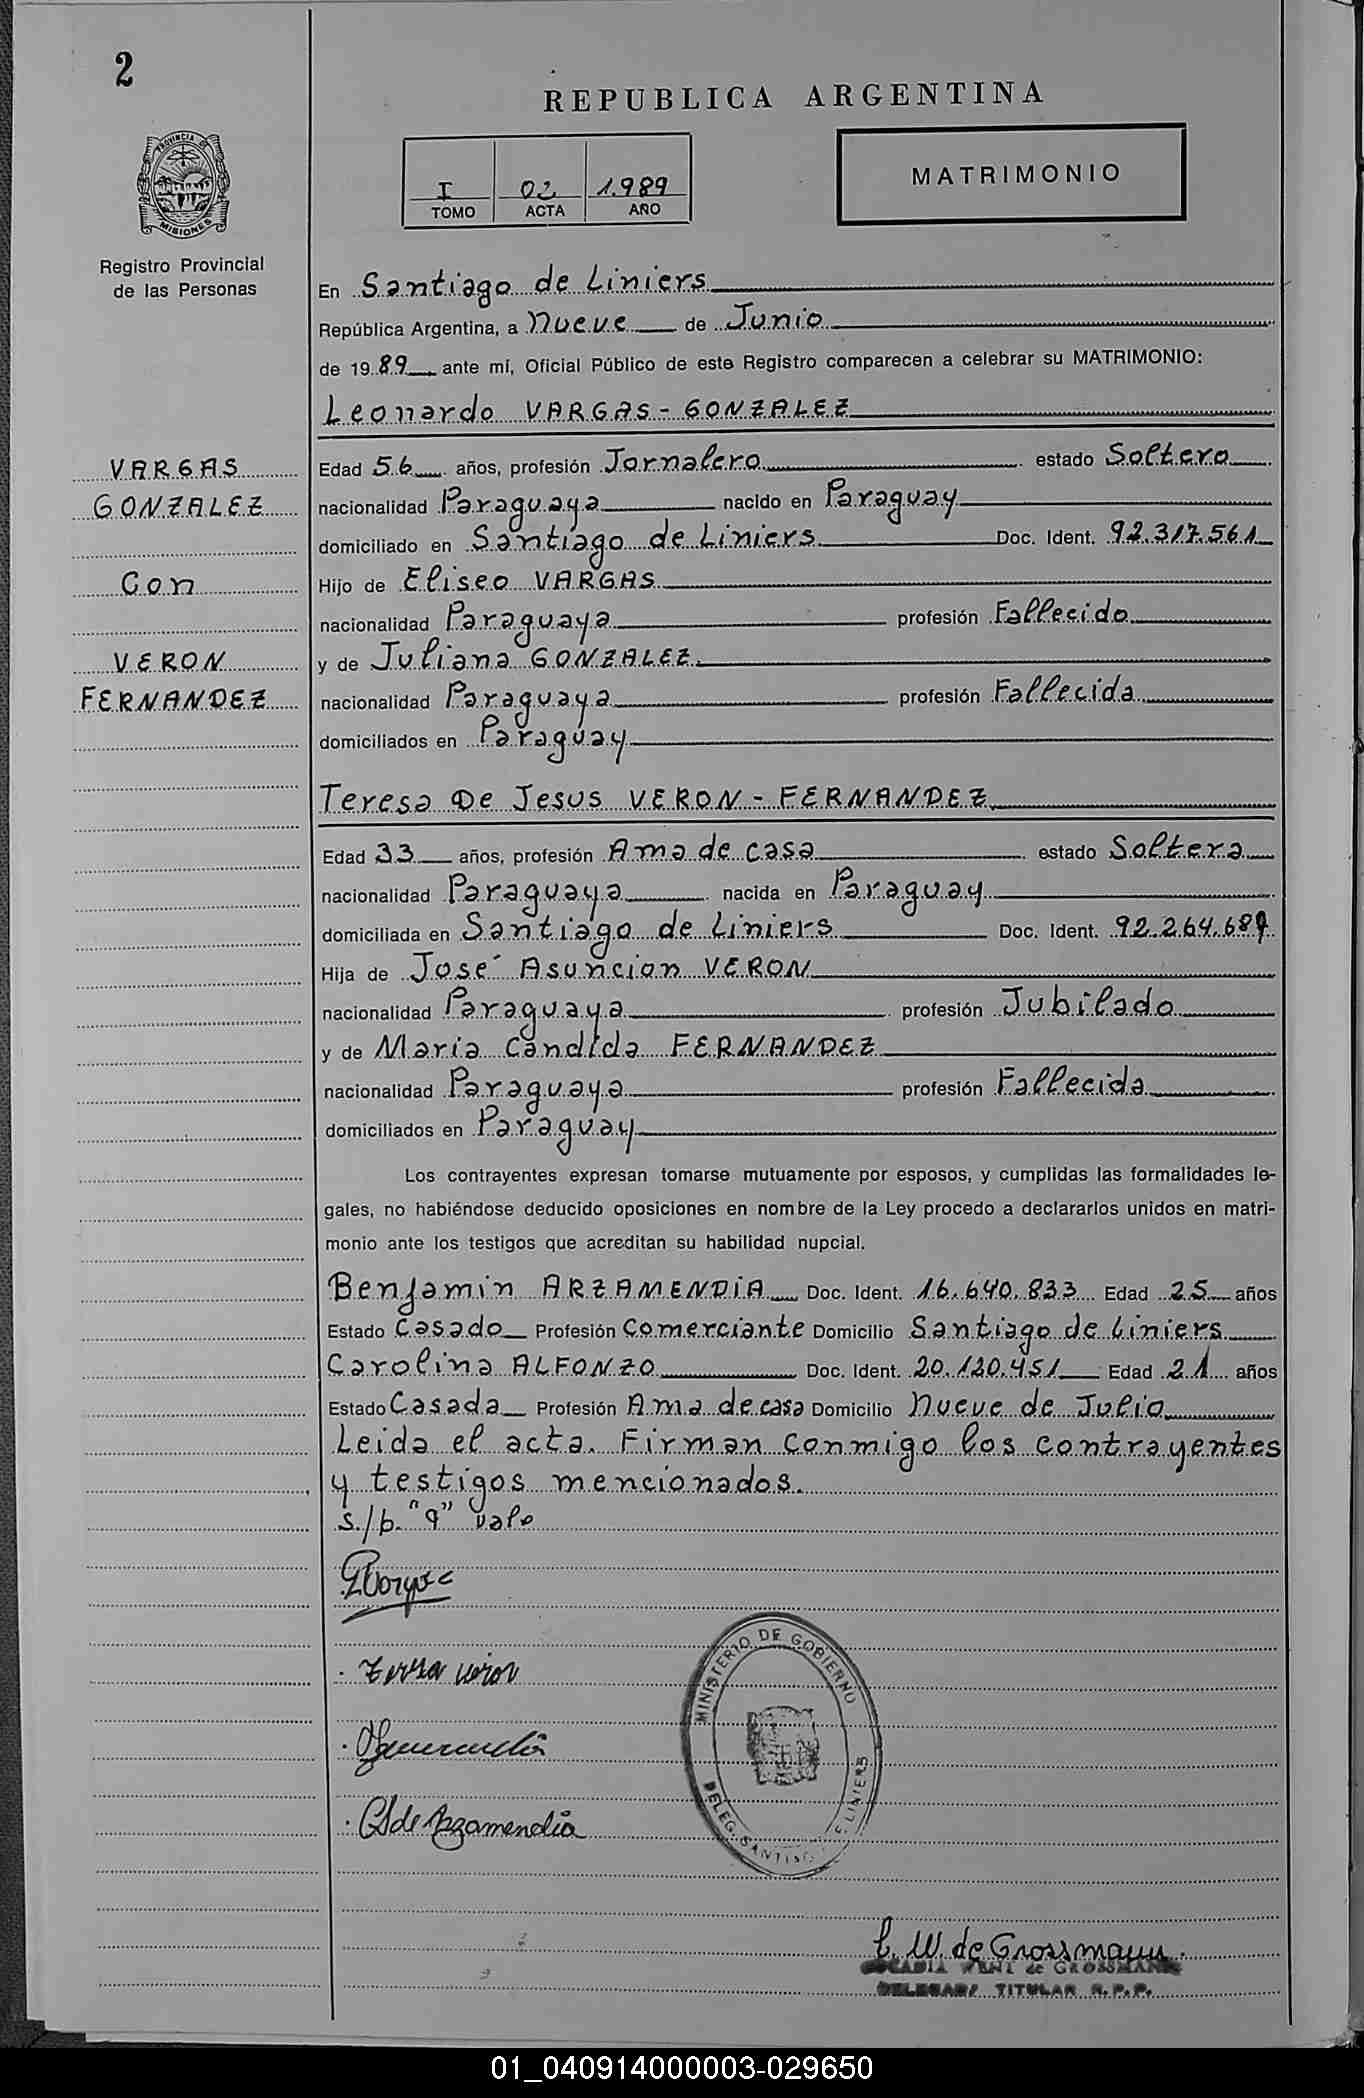 2
REPUBLICA ARGENTINA
PROVINCIA DE
MISIONES
I 02 1.989
TOMO ACTA AÑO
MATRIMONIO
Registro Provincial
de las Personas
En Santiago de Liniers
República Argentina, a Nueve de Junio
de 1989 ante mí, Oficial Público de este Registro comparecen a celebrar su MATRIMONIO:
Leonardo VARGAS - GONZALEZ
VARGAS
GONZALEZ
Con
VERON
FERNANDEZ
Edad 56 años, profesión Jornalero estado Soltero
nacionalidad Paraguaya nacido en Paraguay
domiciliado en Santiago de Liniers Doc. Ident. 92.317.561
Hijo de Eliseo VARGAS
nacionalidad Paraguaya profesión Fallecido
y de Juliana GONZALEZ
nacionalidad Paraguaya profesión Fallecida
domiciliados en Paraguay
Teresa De Jesus VERON - FERNANDEZ
Edad 33 años, profesión Ama de casa estado Soltera
nacionalidad Paraguaya nacida en Paraguay
domiciliada en Santiago de Liniers Doc. Ident. 92.264.689
Hija de José Asuncion VERON
nacionalidad Paraguaya profesión Jubilado
y de Maria Candida FERNANDEZ
nacionalidad Paraguaya profesión Fallecida
domiciliados en Paraguay
Los contrayentes expresan tomarse mutuamente por esposos, y cumplidas las formalidades le-
gales, no habiéndose deducido oposiciones en nombre de la Ley procedo a declararlos unidos en matri-
monio ante los testigos que acreditan su habilidad nupcial.
Benjamin ARZAMENDIA Doc. Ident. 16.640.833 Edad 25 años
Estado Casado Profesión Comerciante Domicilio Santiago de Liniers
Carolina ALFONZO Doc. Ident. 20.120.451 Edad 21 años
Estado Casada Profesión Ama de casa Domicilio Nueve de Julio
Leida el acta. Firman conmigo los contrayentes
y testigos mencionados.
s./b. "9" vale
Teresa veron
de Arzamendia
MINISTERIO DE GOBIERNO
DELEG. SANTIAGO DE LINIERS
C. W. de Grossmann
de GROSSMANN
TITULAR R.P.P.
01_040914000003-029650